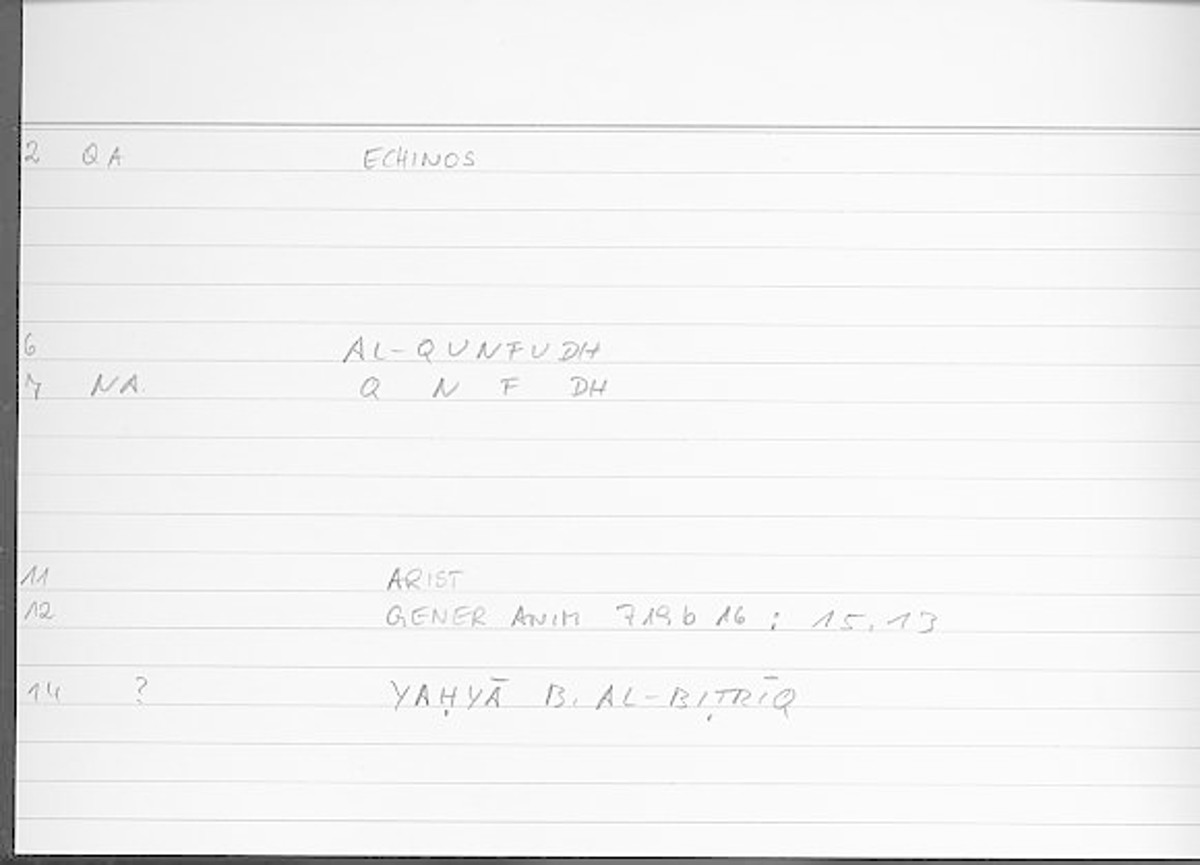 2 QA ECHINOS
6 AL-QUNFUDH
7 NA. Q N F DH
11 ARIST
12 GENER ANIM 719b 16 : 15.13
14 ? YAḤYĀ B. AL-BIṬRĪQ